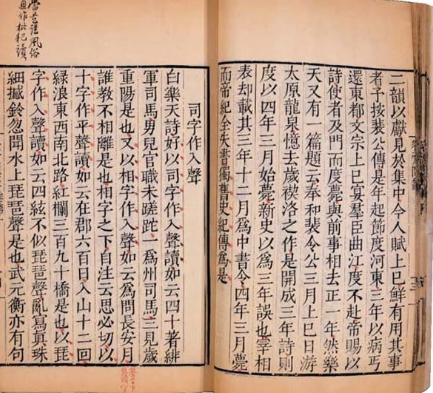 二韻以獻見於集中今人賦上巳鮮有用其事
者予按裴公傳是年起節度河東三年以病丐
還東都文宗上巳宴羣臣曲江度不赴帝賜以
詩使者及門而度薨與前事相去正一年然樂
天又有一篇題云奉和裴令公三月上巳日游
太原龍泉憶去歲禊洛之作是開成三年詩則
度以四年三月始薨新史以為三年誤也宰相
表却載其三年十二月為中書令四年三月薨
而帝紀全失書獨舊史紀傳為是
司字作入聲
白樂天詩好以司字作入聲讀如云四十著緋
軍司馬男兒官職未蹉跎一為州司馬三見歲
重陽是也又以相字作入聲如云為問長安月
誰教不相離是也相字之下自注云思必切以
十字作平聲讀如云在郡六百日入山十二回
綠浪東西南北路紅欄三百九十橋是也以琵
字作入聲讀如云四絃不似琵琶聲亂寫真珠
細撼鈴忽聞水上琵琶聲是也武元衡亦有句